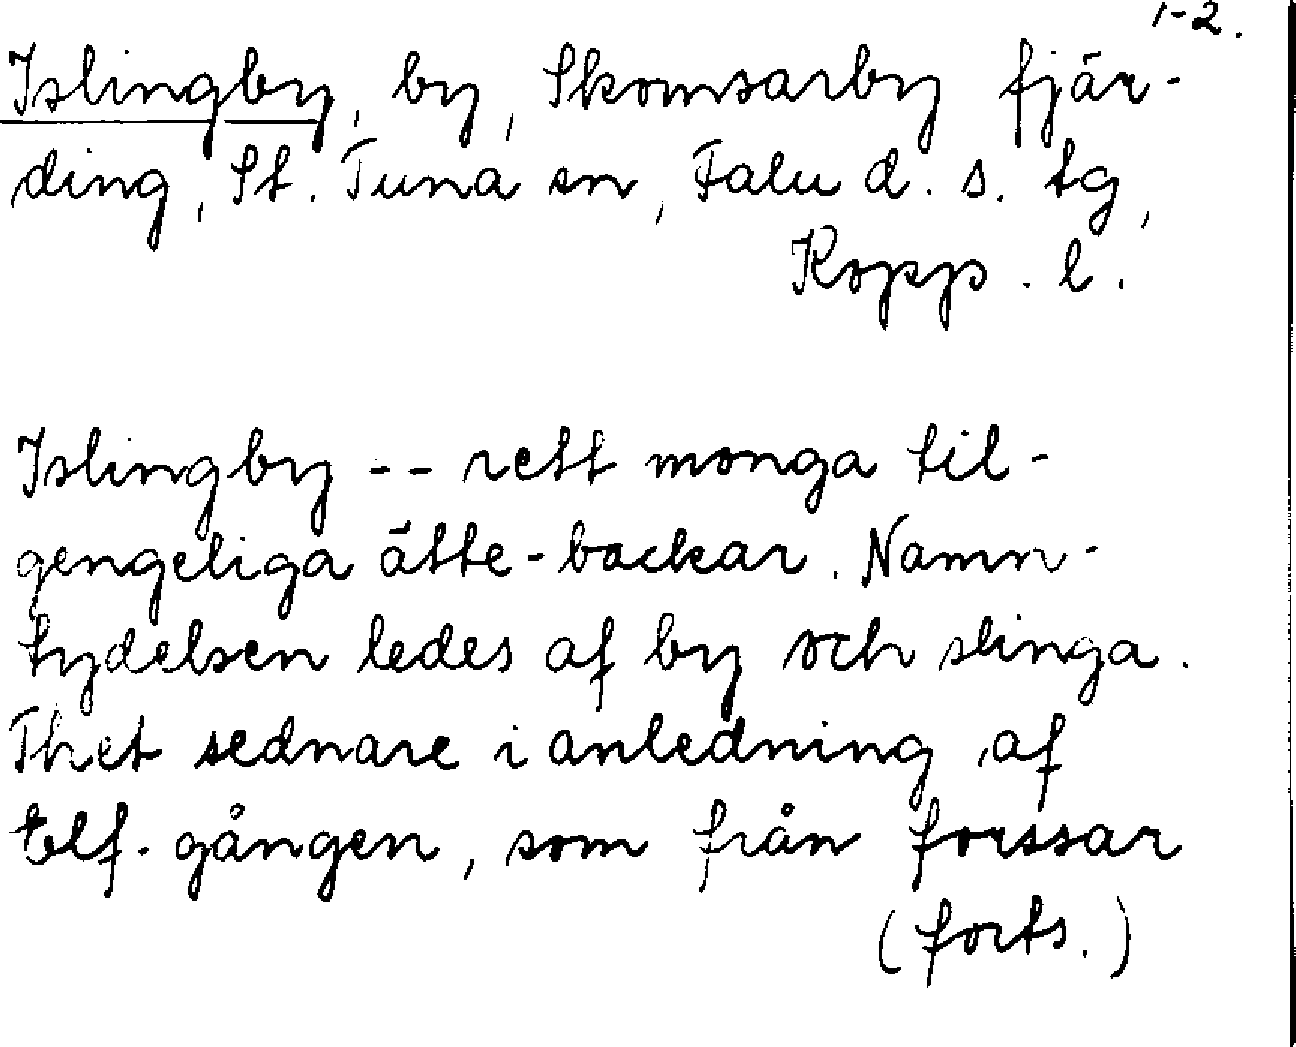 1-2.
Islingby, by, Skomsarby fjär-
ding, St. Tuna sn, Falu d. s. tg,
Kopp. l.
Islingby -- rett monga til-
gengeliga ätte-backar. Namn-
tydelsen ledes af by och slinga.
Thet sednare i anledning af
Elf-gången, som från forssar
(forts.)